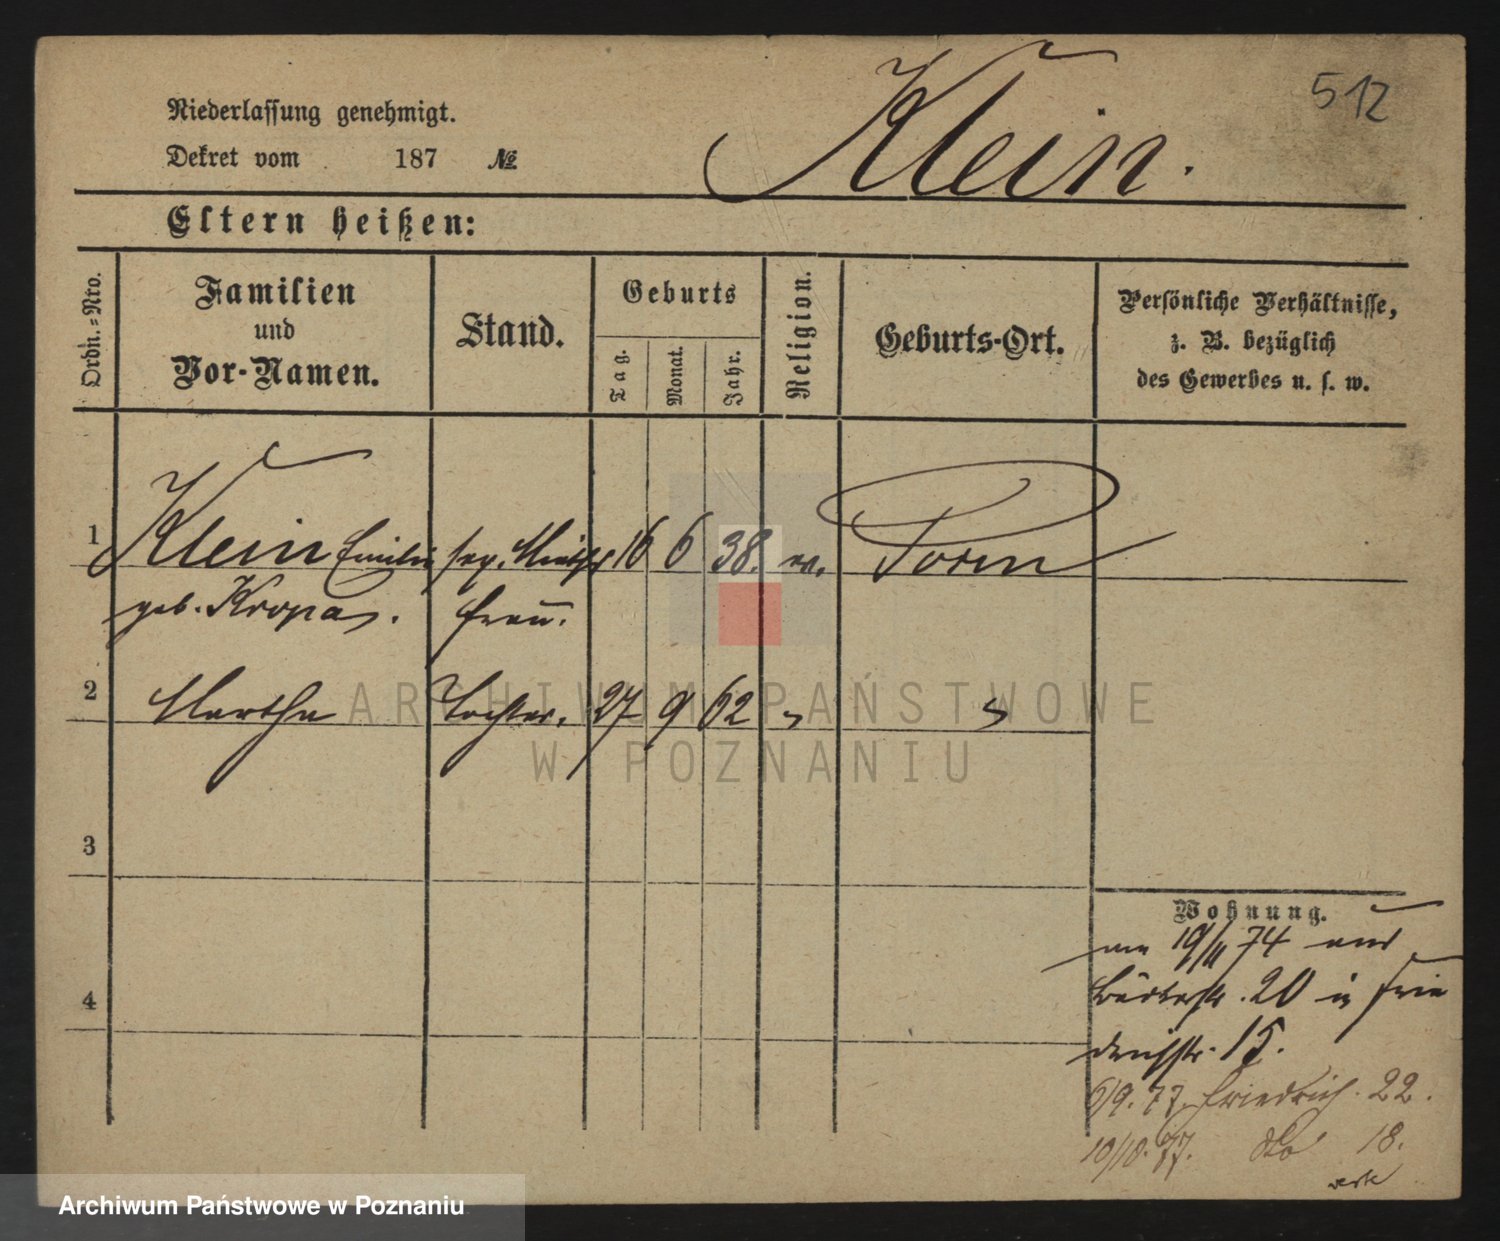 512
Klein.
Niederlassung genehmigt.
Dekret vom 187 №
Eltern heißen:
Ordn.-Nro.
Familien
und
Vor-Namen.
Stand.
Geburts
Tag.
Monat.
Jahr.
Religion.
Geburts-Ort.
Persönliche Verhältnisse,
z. B. bezüglich
des Gewerbes u. s. w.
1 Klein Emilie sep. 16 6 38. ev. Posen
geb. Kropa frau.
2 Martha Tochter. 27 9 62 " "
3
4
Wohnung.
am 19/11 74 aus
20 in Frie
drichstr. 15.
6/9. 77. Friedrich. 22.
10/10. 77. dto 18.
ARCHIWUM PAŃSTWOWE
W POZNANIU
Archiwum Państwowe w Poznaniu